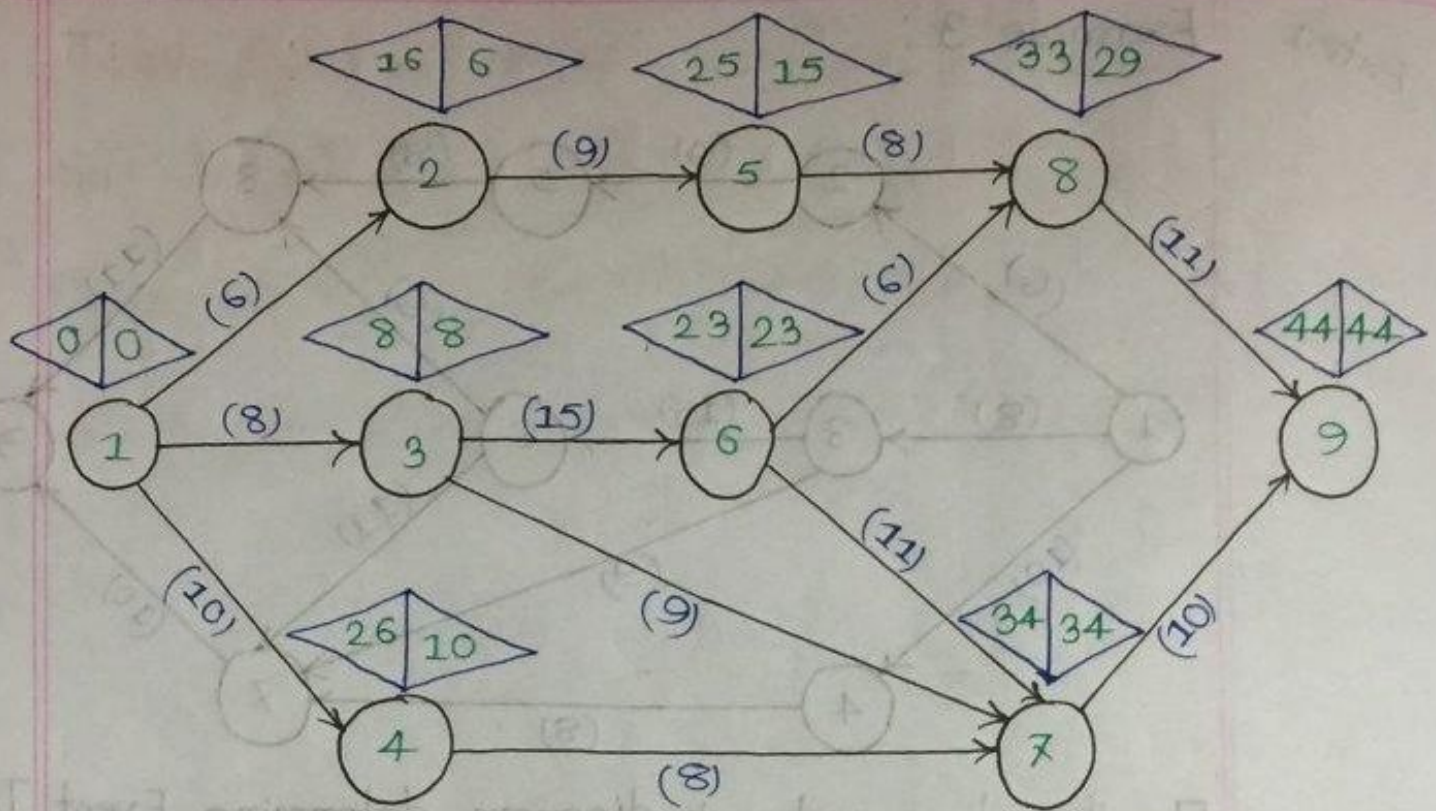 16 6 25 15 33 29
2 (9) 5 (8) 8
(6) (6) (11)
0 0 8 8 23 23 44 44
1 (8) 3 (15) 6 9
(10) (9) (11) (10)
26 10 34 34
4 (8) 7